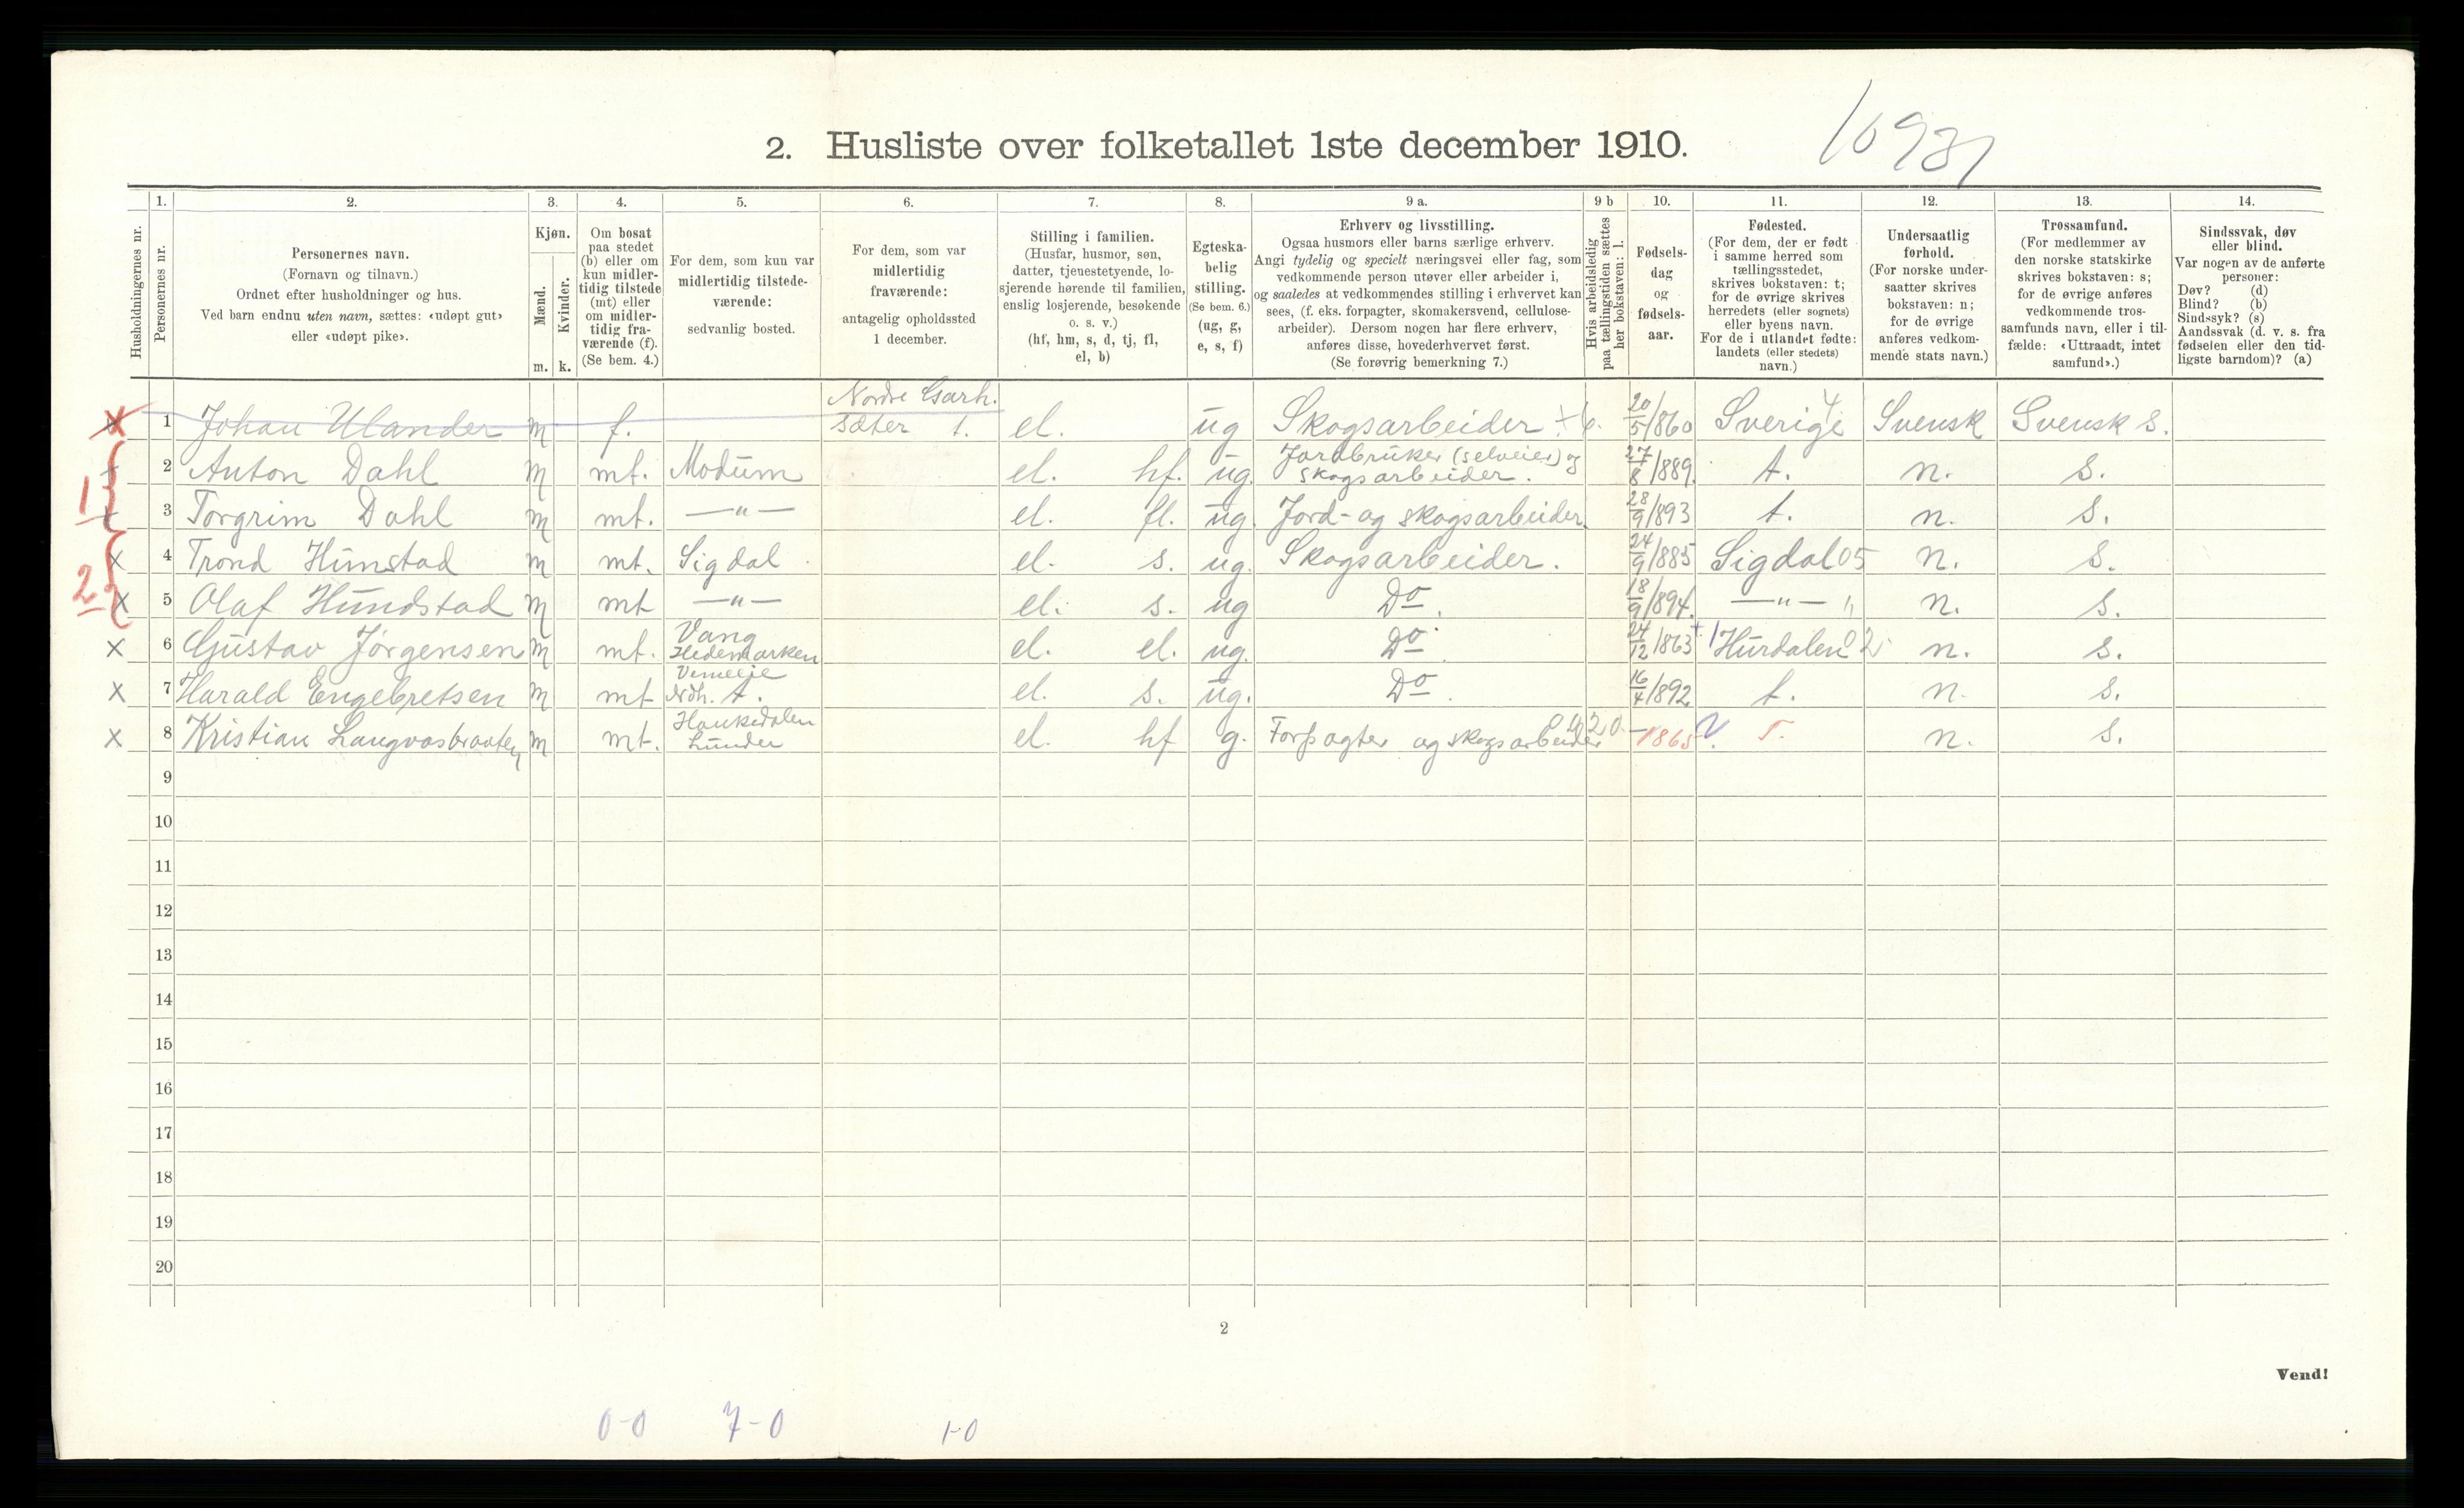 2. Husliste over folketallet 1ste december 1910.
Husholdningernes nr.
1.
Personernes nr.
2.
Personernes navn.
(Fornavn og tilnavn.)
Ordnet efter husholdninger og hus.
Ved barn endnu uten navn, sættes: «udøpt gut»
eller «udøpt pike».
3.
Kjøn.
Mænd.
Kvinder.
m. k.
4.
Om bosat
paa stedet
(b) eller om
kun midler-
tidig tilstede
(mt) eller
om midler-
tidig fra-
værende (f).
(Se bem. 4.)
5.
For dem, som kun var
midlertidig tilstede-
værende:
sedvanlig bosted.
6.
For dem, som var
midlertidig
fraværende:
antagelig opholdssted
1 december.
7.
Stilling i familien.
(Husfar, husmor, søn,
datter, tjenestetyende, lo-
sjerende hørende til familien,
enslig losjerende, besøkende
o. s. v.)
(hf, hm, s, d, tj, fl,
el, b)
8.
Egteska-
belig
stilling.
(Se bem. 6.)
(ug, g,
e, s, f)
9 a.
Erhverv og livsstilling.
Ogsaa husmors eller barns særlige erhverv.
Angi tydelig og specielt næringsvei eller fag, som
vedkommende person utøver eller arbeider i,
og saaledes at vedkommendes stilling i erhvervet kan
sees, (f. eks. forpagter, skomakersvend, cellulose-
arbeider). Dersom nogen har flere erhverv,
anføres disse, hovederhvervet først.
(Se forøvrig bemerkning 7.)
9 b
Hvis arbeidsledig
paa tællingstiden sættes
her bokstaven: l.
10.
Fødsels-
dag
og
fødsels-
aar.
11.
Fødested.
(For dem, der er født
i samme herred som
tællingsstedet,
skrives bokstaven: t;
for de øvrige skrives
herredets (eller sognets)
eller byens navn.
For de i utlandet fødte:
landets (eller stedets)
navn.)
12.
Undersaatlig
forhold.
(For norske under-
saatter skrives
bokstaven: n;
for de øvrige
anføres vedkom-
mende stats navn.)
13.
Trossamfund.
(For medlemmer av
den norske statskirke
skrives bokstaven: s;
for de øvrige anføres
vedkommende tros-
samfunds navn, eller i til-
fælde: «Uttraadt, intet
samfund».)
14.
Sindssvak, døv
eller blind.
Var nogen av de anførte
personer:
Døv? (d)
Blind? (b)
Sindssyk? (s)
Aandssvak (d. v. s. fra
fødselen eller den tid-
ligste barndom)? (a)
x 1 Johan Ulander m f. Nordre Garh. sæter t. el. ug Skogsarbeider 20/5/860 Sverige 4 Svensk Svensk s.
1 2 Anton Dahl m mt. Modum el. hf. ug. Jordbruker (selveier) og skogsarbeider. 27/8/889 t. n. s.
3 Torgrim Dahl m mt. —"— el. fl. ug. Jord- og skogsarbeider. 28/9/893 t. n. s.
2 x 4 Trond Himstad m mt. Sigdal el. s. ug. Skogsarbeider. 24/9/885 Sigdal 05 n. s.
x 5 Olaf Hundstad m mt —"— el. s. ug Do. 18/9/894. —"— " n. s.
x 6 Gustav Jørgensen m mt. Vang Hedemarken el. el. ug. Do 24/12/863 Hurdalen 02 n. s.
x 7 Harald Engebretsen m mt Ndh. t. el. s. ug. Do. 16/4/892 t. n. s.
x 8 Kristian Langvasbraaten m mt. Haukedalen Lunder el. hf g. Forpagter og skogsarbeider — 1865 T. n. s.
9
10
11
12
13
14
15
16
17
18
19
20
2
Vend!
0-0 7-0 1-0